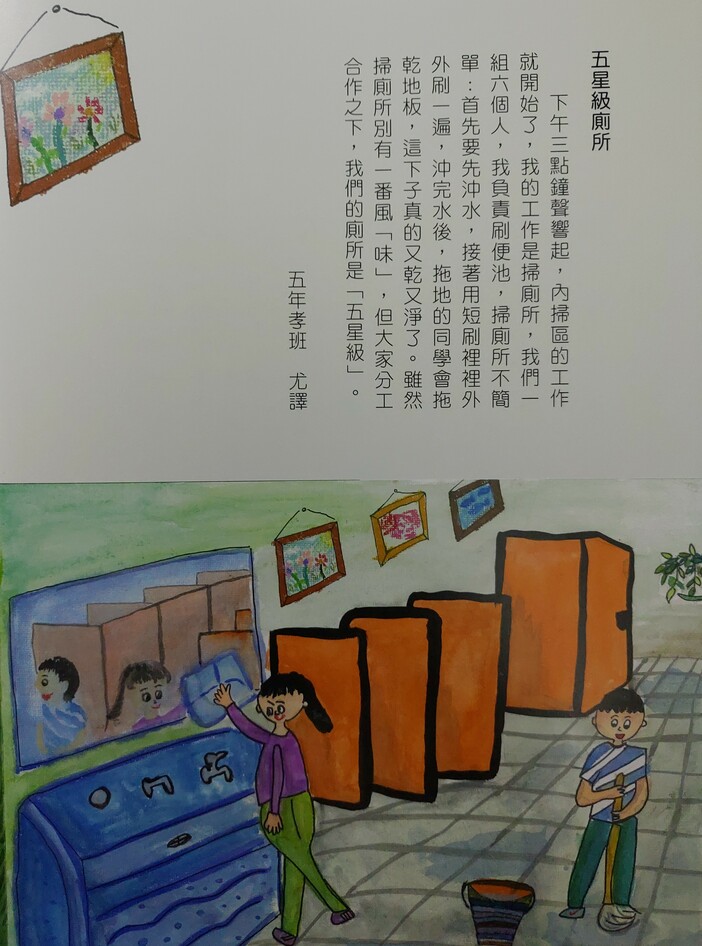 五星級廁所
下午三點鐘聲響起，內掃區的工作
就開始了，我的工作是掃廁所，我們一
組六個人，我負責刷便池，掃廁所不簡
單：首先要先沖水，接著用短刷裡裡外
外刷一遍，沖完水後，拖地的同學會拖
乾地板，這下子真的又乾又淨了。雖然
掃廁所別有一番風「味」，但大家分工
合作之下，我們的廁所是「五星級」。
五年孝班　尤譯